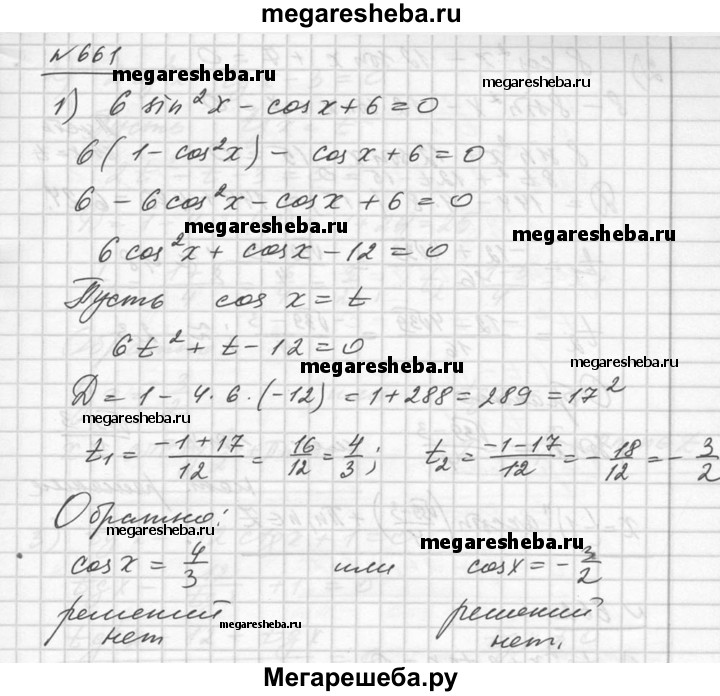 megaresheba.ru
№ 661
megaresheba.ru
1) 6 sin²x - cos x + 6 = 0
6(1 - cos²x) - cos x + 6 = 0
6 - 6cos²x - cos x + 6 = 0
megaresheba.ru megaresheba.ru
6cos²x + cos x - 12 = 0
Пусть cos x = t
6t² + t - 12 = 0
megaresheba.ru megaresheba.ru
D = 1 - 4·6·(-12) = 1 + 288 = 289 = 17²
megaresheba.ru
t₁ = (-1+17)/12 = 16/12 = 4/3; t₂ = (-1-17)/12 = -18/12 = -3/2
Обратно:
megaresheba.ru megaresheba.ru
cos x = 4/3 или cos x = -3/2
решений решений
megaresheba.ru
нет нет.
Мегарешеба.ру